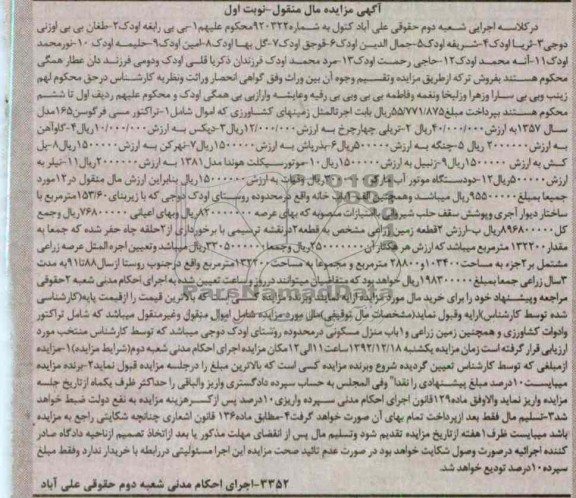 آگهی مزایده مال منقول-نوبت اول
درکلاسه اجرایی شعبه دوم حقوقی علی آباد کتول به شماره۹۲۰۳۲۲محکوم علیهم۱-بی بی رابعه اودک۲-طلعان بی بی اوزنی
دوجی۳-ثریا اودک۴-شریفه اودک۵-جمال الدین اودک۶-قوجق اودک۷-گل بها اودک۸-امین اودک۹-حلیمه اودک ۱۰-نورمحمد
اودک۱۱-آنه محمد اودک۱۲-حاجی رحمت اودک۱۳-مرد محمد اودک فرزندان ذکریا قلی اودک ودومی فرزند دان عطار همگی
محکوم هستند بفروش ترکه ازطریق مزایده وتقسیم وجوه آن بین وراث وفق گواهی انحصار وراثت ونظریه کارشناس درحق محکوم لهم
زینب وبی بی سارا وزهرا وزلیخا ونغمه وفاطمه بی بی وبی بی رقیه وعایشه وارازبی بی همگی اودک و محکوم علیهم ردیف اول تا ششم
محکوم هستند بپرداخت مبلغ۵۵/۷۷۱/۸۷۵ریال بابت اجرتالمثل زمینهای کشاورزی که اموال شامل۱-تراکتور مسی فرگوسن۱۶۵مدل
سال ۱۳۵۷به ارزش۴۰/۰۰۰/۰۰۰ریال ۲-تریلی چهارچرخ به ارزش۱۲/۰۰۰/۰۰۰ریال۳-دیکس به ارزش۱۰/۰۰۰/۰۰۰ریال۴-گاوآهن
به ارزش۲۰۰۰۰۰۰ ریال ۵-چنگه به ارزش۵۰۰۰۰۰۰ریال۶-بذرپاش به ارزش۱۵۰۰۰۰۰ریال۷-نهرکن به ارزش۱۵۰۰۰۰۰ریال۸-پل
کش به ارزش ۱۵۰۰۰۰۰ریال۹-زنبیل به ارزش۱۵۰۰۰۰۰ریال۱۰-موتورسیکلت هوندا مدل۱۳۸۱ به ارزش۲۰۰۰۰۰۰ریال۱۱-تیلر به
ارزش۵۰۰۰۰۰ریال۱۲-دودستگاه موتور آب ریال بنابراین ارزش مال منقول در۱۲مورد
جمیعا بمبلغ۹۵۵۰۰۰۰۰ریال میباشد وهمچنین الف-یکباب خانه واقع درمحدوده روستای اودک دوجی که با زیربنای۱۵۳/۶۰مترمربع با
ساختار دیوار آجری وپوشش سقف حلب شیروانی باامتیازات منصوبه که بهای عرصه ۸۲۰۰۰۰۰۰ریال وبهای اعیانی ۷۶۸۰۰۰۰ریال وجمع
کل ۸۹۶۸۰۰۰۰ریال ب-ارزش ۲قطعه زمین زراعی مشخص به قطعه۲درنقشه ترسیمی با برخورداری از۲حلقه چاه حفر شده که جمعا به
مقدار ۱۳۲۲۰۰ مترمربع میباشد که ارزش هر هکتار آن ۲۵۰۰۰۰۰۰۰ریال وجمعا ۳۳۰۵۰۰۰۰۰۰ریال میباشد وتعیین اجرهالمثل عرصه زراعی
مشتمل بر۲جزء به مساحت۱۰۳۴۰۰و۲۸۸۰۰ مترمربع و مجموعا به مساحت ۱۳۲۲۰۰مترمربع واقع درجنوب روستا ازسال۸۸تا۹۱به مدت
۳سال زراعی جمعا بمبلغ۱۹۸۳۰۰۰۰۰ریال خواهد بود که متقاضیان میتوانند درروز و ساعت تعیین شده به اجرای احکام مدنی شعبه ۲حقوقی
مراجعه وپیشنهاد خود را برای خرید مال مورد مزایده بالاترین قیمت را ازقیمت پایه(کارشناسی
شده توسط کارشناس)ارایه وقبول نماید(مشخصات مال توقیفی)مال مورد مزایده شامل اموال منقول وغیرمنقول میباشد که شامل تراکتور
وادوات کشاورزی و همچنین زمین زراعی و۱باب منزل مسکونی درمحدوده روستای اودک دوجی میباشد که توسط کارشناس منتخب مورد
ارزیابی قرار گرفته است زمان مزایده یکشنبه ۱۳۹۲/۱۲/۱۸ساعت۱۱الی۱۲مکان مزایده اجرای احکام مدنی شعبه دوم(شرایط مزایده)۱-مزایده
ازمبلغی که توسط کارشناس تعیین گردیده شروع وبرنده مزایده کسی است که بالاترین مبلغ را درجلسه مزایده قبول نماید۲-برنده مزایده
میبایست۱۰درصد مبلغ پیشنهادی را نقدا" وفی المجلس به حساب سپرده دادگستری واریز والباقی را حداکثر ظرف یکماه ازتاریخ جلسه
مزایده واریز نماید والاوفق ماده۱۲۹قانون اجرای احکام مدنی سپرده واریزی۱۰درصد پس ازکسرهزینه مزایده به نفع دولت ضبط خواهد
شد۳-تسلیم مال فقط بعد ازپرداخت تمام بهای آن صورت خواهد گرفت۴-مطابق ماده۱۳۶ قانون اشعاری چنانچه شکایتی راجع به مزایده
باشد میبایست ظرف۱هفته ازتاریخ مزایده تقدیم شود وتسلیم مال پس از انقضای مهلت مذکور یا بعد ازاتخاذ تصمیم ازناحیه دادگاه صادر
کننده اجرائیه درصورت وصول شکایت خواهد بود در صورت عدم تائید صحت مزایده این اجرا مسئولیتی دررابطه با خریدار ندارد وفقط مبلغ
سپرده۱۰درصد تودیع خواهد شد.
۳۳۵۲-اجرای احکام مدنی شعبه دوم حقوقی علی آباد